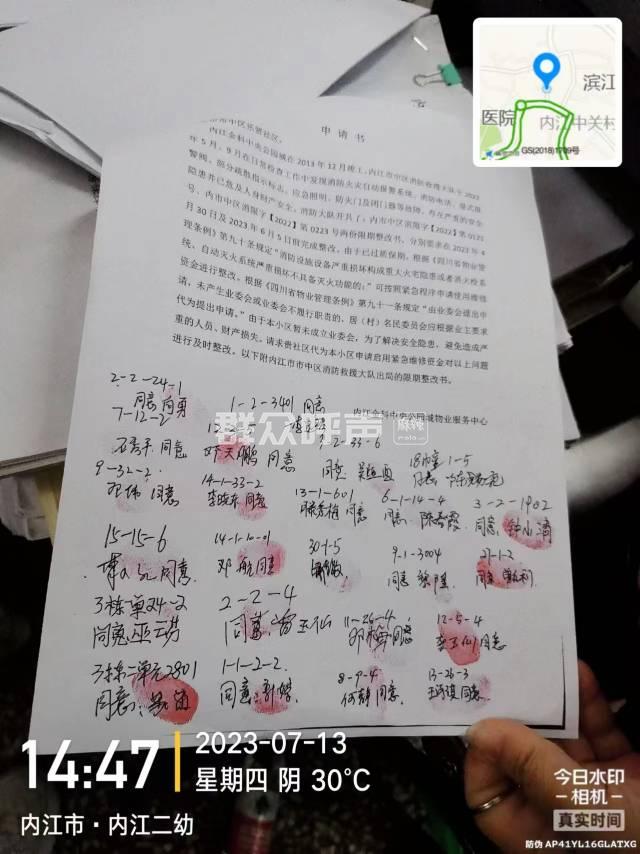 申请书
市中区乐贤社区,
内江金科中央公园城在2013年12月竣工,内江市中区消防救援大队于2022
年5月、9月在日常检查工作中发现消防火灾自动报警系统、消防电话、湿式报
警阀、防分疏散指示标志、应急照明、防火门及闭门器等故障,存在严重的安全
隐患并已危及人身财产安全,消防大队开具了:内市中区消限字【2022】第0121
号、内市中区消限字【2022】第0223号两份限期整改书,分别要求在2023年4
月30日及2023年6月5日前完成整改。由于已过质保期,根据《四川省物业管
理条例》第九十条规定"消防设施设备严重损坏构成重大火宅隐患或者消火栓系
统、自动灭火系统严重损坏不具备灭火功能的;"可按照紧急程序申请使用维修
资金进行整改。根据《四川省物业管理条例》第九十一条规定"由业委会提出申
请,未产生业委会或业委会不履行职责的,居(村)名民委员会应根据业主要求
代为提出申请。"由于本小区暂未成立业委会,为了解决安全隐患,避免造成严
重的人员、财产损失。请求贵社区代为本小区申请启用紧急维修资金对以上问题
进行及时整改。以下附内江市市中区消防救援大队出局的限期整改书。
内江金科中央公园城物业服务中心
2-2-24-1
同意
7-12-2
同意
1-2-3401 同意
天鹏 同意
2-33-6
同意
18栋 1-5
9-32-2
同意
14-1-33-2
李晓东 同意
13-1-601
同意
6-1-14-4
同意 陈春霞
3-2-1902
同意 钟小清
15-15-6
同意
14-1-10-01
邓航 同意
30-1-5
9-1-3004
同意
27-1-2
同意
3栋单24-2
同意 巫云芬
2-2-4
同意 曾玉仙
11-26-4
同意
12-5-4
李玉仙 同意
3栋二单元2801
同意:
1-1-2-2
同意:
8-9-4
何静 同意
13-26-3
同意
群众呼声
麻辣
滨江
医院
内江中关村
GS(2018)1709号
14:47
2023-07-13
星期四 阴 30℃
内江市·内江二幼
今日水印
相机
真实时间
防伪 AP41YL16GLATXG